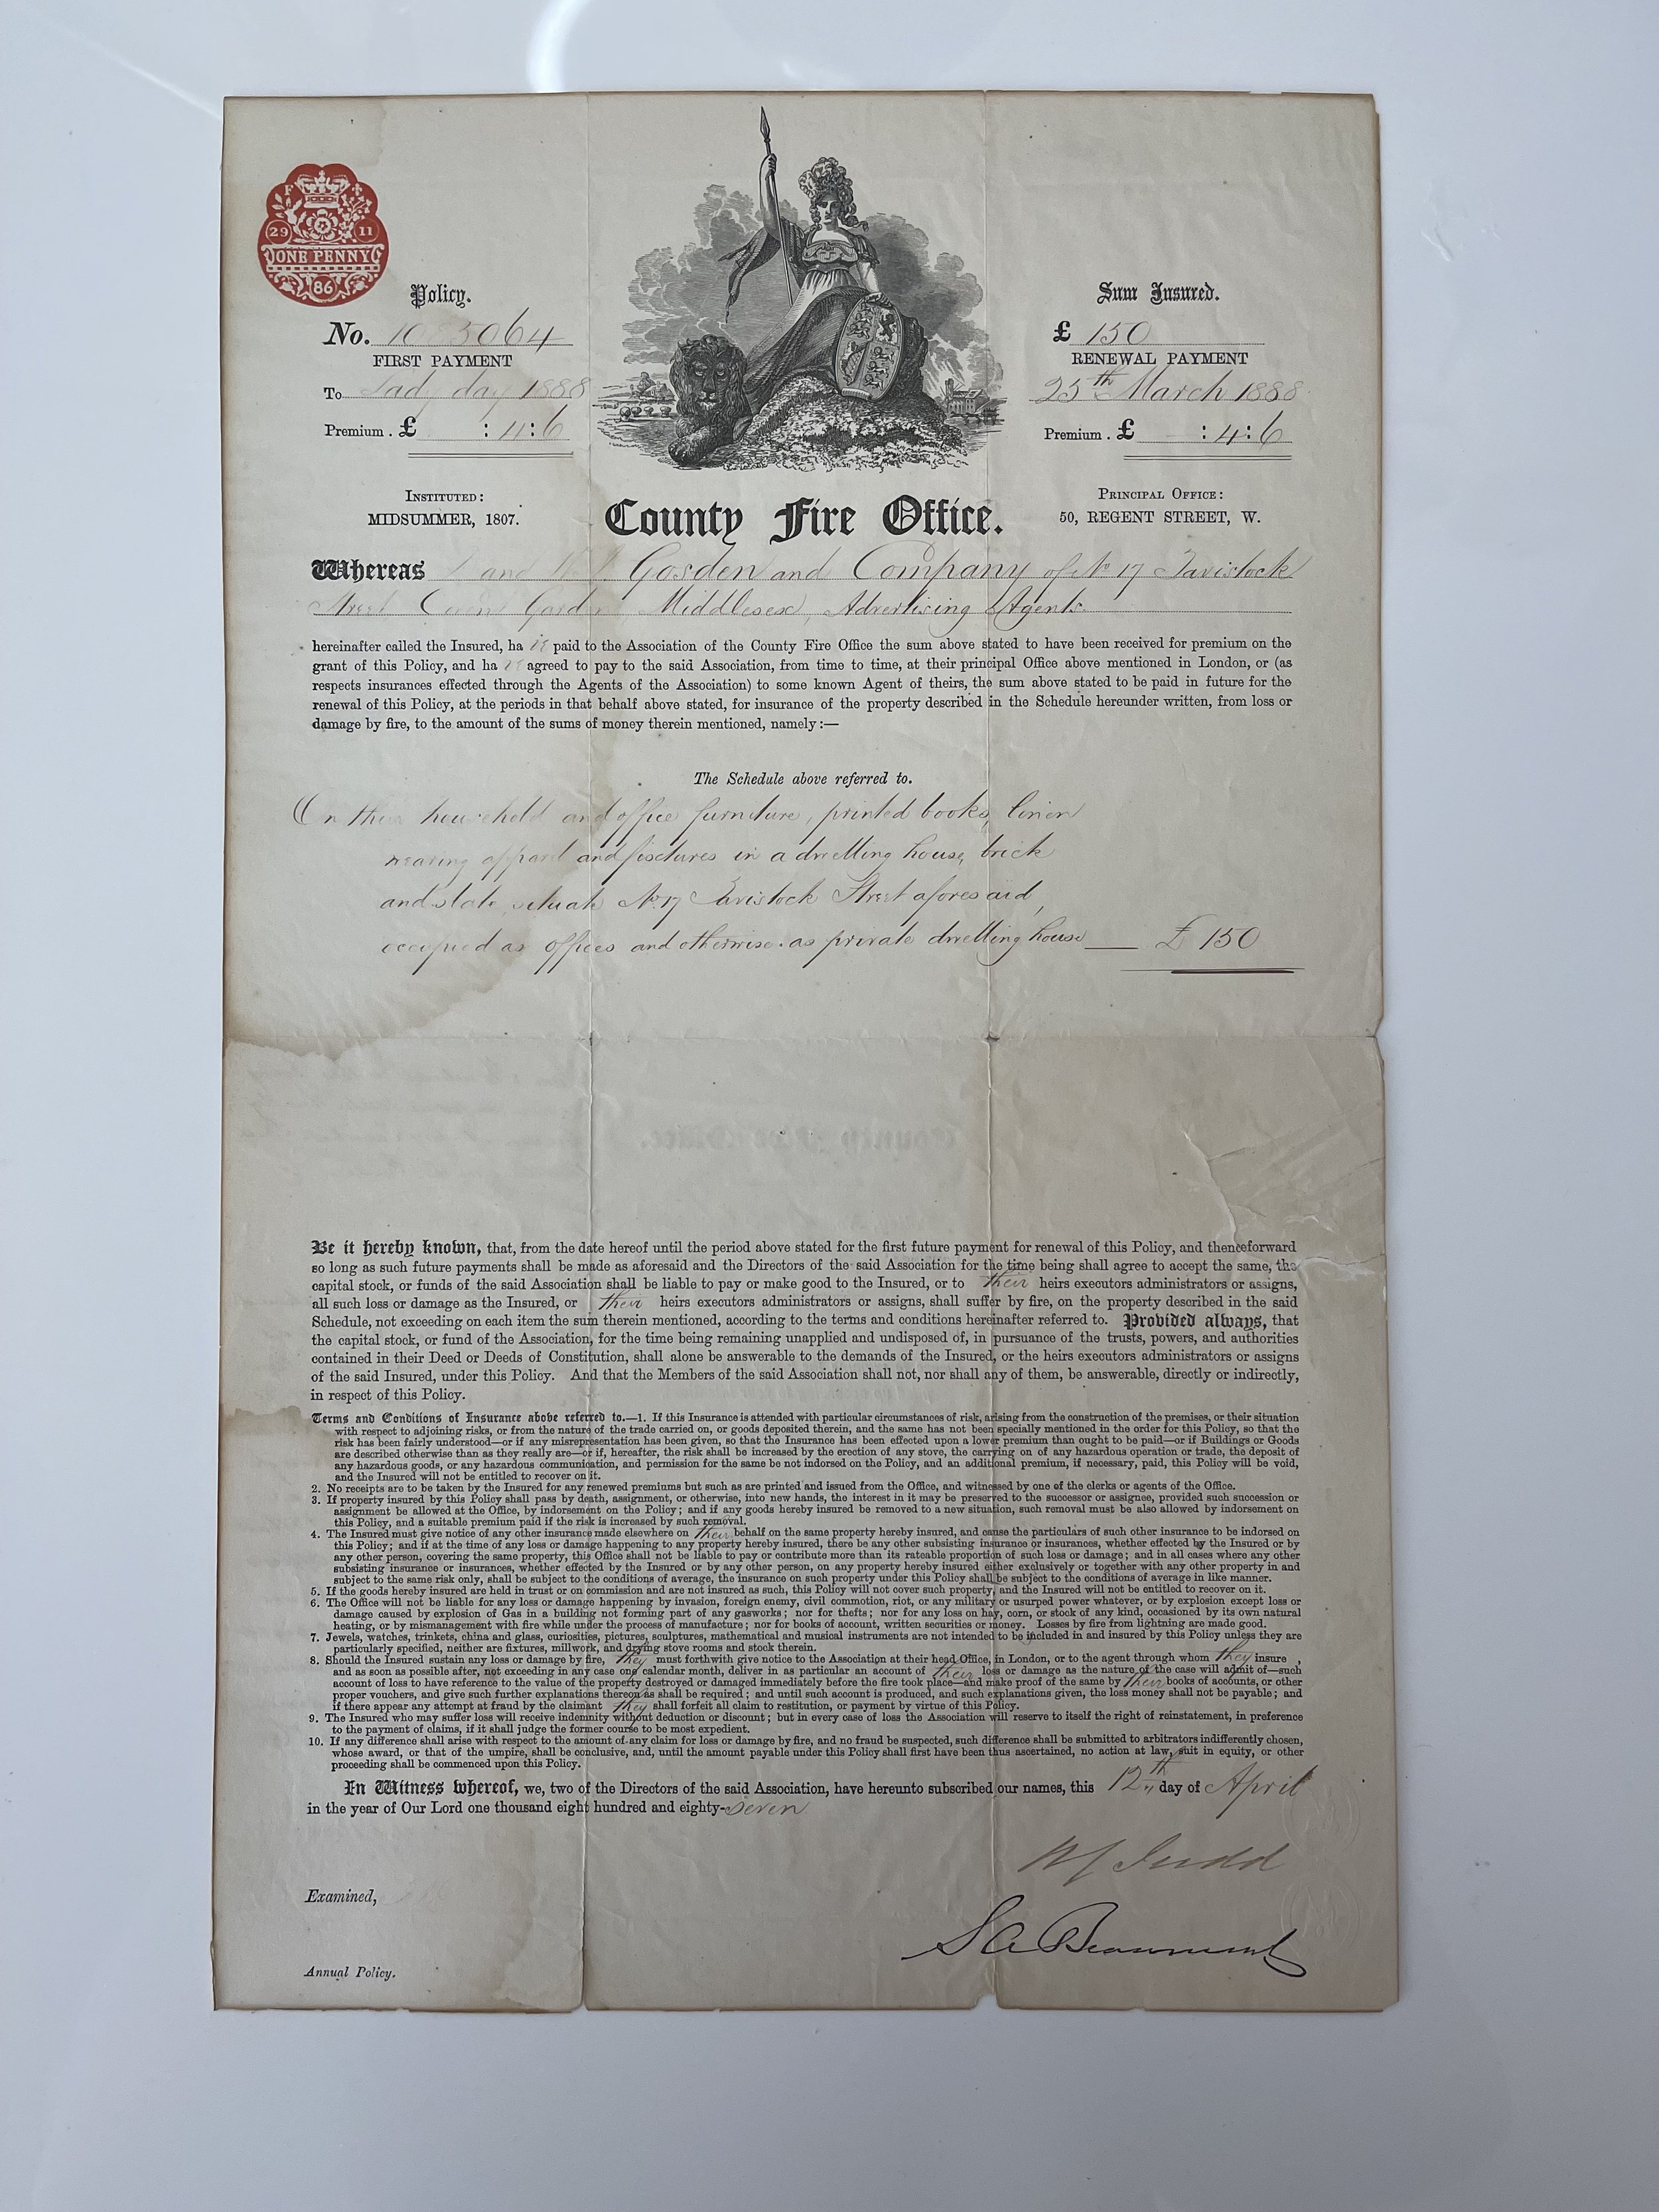 F
29 11
ONE PENNY
86
Policy.
No. 1085064
FIRST PAYMENT
To Lady day 1888
Premium . £ : 4 : 6
Sum Insured.
£ 150
RENEWAL PAYMENT
25th March 1888
Premium . £ : 4 : 6
INSTITUTED:
MIDSUMMER, 1807.
County Fire Office.
PRINCIPAL OFFICE:
50, REGENT STREET, W.
Whereas and Gosden and Company of No 17 Tavistock
Street Covent Garden Middlesex, Advertising Agents
hereinafter called the Insured, ha ve paid to the Association of the County Fire Office the sum above stated to have been received for premium on the
grant of this Policy, and ha ve agreed to pay to the said Association, from time to time, at their principal Office above mentioned in London, or (as
respects insurances effected through the Agents of the Association) to some known Agent of theirs, the sum above stated to be paid in future for the
renewal of this Policy, at the periods in that behalf above stated, for insurance of the property described in the Schedule hereunder written, from loss or
damage by fire, to the amount of the sums of money therein mentioned, namely:—
The Schedule above referred to.
On their household and office furniture, printed books, linen
wearing apparel and fixtures in a dwelling house, brick
and slate, situate No 17 Tavistock Street aforesaid,
occupied as offices and otherwise as private dwelling house — £ 150
Be it hereby known, that, from the date hereof until the period above stated for the first future payment for renewal of this Policy, and thenceforward
so long as such future payments shall be made as aforesaid and the Directors of the said Association for the time being shall agree to accept the same, the
capital stock, or funds of the said Association shall be liable to pay or make good to the Insured, or to their heirs executors administrators or assigns,
all such loss or damage as the Insured, or their heirs executors administrators or assigns, shall suffer by fire, on the property described in the said
Schedule, not exceeding on each item the sum therein mentioned, according to the terms and conditions hereinafter referred to. Provided always, that
the capital stock, or fund of the Association, for the time being remaining unapplied and undisposed of, in pursuance of the trusts, powers, and authorities
contained in their Deed or Deeds of Constitution, shall alone be answerable to the demands of the Insured, or the heirs executors administrators or assigns
of the said Insured, under this Policy. And that the Members of the said Association shall not, nor shall any of them, be answerable, directly or indirectly,
in respect of this Policy.
Terms and Conditions of Insurance above referred to.—1. If this Insurance is attended with particular circumstances of risk, arising from the construction of the premises, or their situation
with respect to adjoining risks, or from the nature of the trade carried on, or goods deposited therein, and the same has not been specially mentioned in the order for this Policy, so that the
risk has been fairly understood—or if any misrepresentation has been given, so that the Insurance has been effected upon a lower premium than ought to be paid—or if Buildings or Goods
are described otherwise than as they really are—or if, hereafter, the risk shall be increased by the erection of any stove, the carrying on of any hazardous operation or trade, the deposit of
any hazardous goods, or any hazardous communication, and permission for the same be not indorsed on the Policy, and an additional premium, if necessary, paid, this Policy will be void,
and the Insured will not be entitled to recover on it.
2. No receipts are to be taken by the Insured for any renewed premiums but such as are printed and issued from the Office, and witnessed by one of the clerks or agents of the Office.
3. If property insured by this Policy shall pass by death, assignment, or otherwise, into new hands, the interest in it may be preserved to the successor or assignee, provided such succession or
assignment be allowed at the Office, by indorsement on the Policy; and if any goods hereby insured be removed to a new situation, such removal must be also allowed by indorsement on
this Policy, and a suitable premium paid if the risk is increased by such removal.
4. The Insured must give notice of any other insurance made elsewhere on their behalf on the same property hereby insured, and cause the particulars of such other insurance to be indorsed on
this Policy; and if at the time of any loss or damage happening to any property hereby insured, there be any other subsisting insurance or insurances, whether effected by the Insured or by
any other person, covering the same property, this Office shall not be liable to pay or contribute more than its rateable proportion of such loss or damage; and in all cases where any other
subsisting insurance or insurances, whether effected by the Insured or by any other person, on any property hereby insured either exclusively or together with any other property in and
subject to the same risk only, shall be subject to the conditions of average, the insurance on such property under this Policy shall be subject to the conditions of average in like manner.
5. If the goods hereby insured are held in trust or on commission and are not insured as such, this Policy will not cover such property, and the Insured will not be entitled to recover on it.
6. The Office will not be liable for any loss or damage happening by invasion, foreign enemy, civil commotion, riot, or any military or usurped power whatever, or by explosion except loss or
damage caused by explosion of Gas in a building not forming part of any gasworks; nor for thefts; nor for any loss on hay, corn, or stock of any kind, occasioned by its own natural
heating, or by mismanagement with fire while under the process of manufacture; nor for books of account, written securities or money. Losses by fire from lightning are made good.
7. Jewels, watches, trinkets, china and glass, curiosities, pictures, sculptures, mathematical and musical instruments are not intended to be included in and insured by this Policy unless they are
particularly specified, neither are fixtures, millwork, and drying stove rooms and stock therein.
8. Should the Insured sustain any loss or damage by fire, they must forthwith give notice to the Association at their head Office, in London, or to the agent through whom they insure ,
and as soon as possible after, not exceeding in any case one calendar month, deliver in as particular an account of their loss or damage as the nature of the case will admit of—such
account of loss to have reference to the value of the property destroyed or damaged immediately before the fire took place—and make proof of the same by their books of accounts, or other
proper vouchers, and give such further explanations thereon as shall be required; and until such account is produced, and such explanations given, the loss money shall not be payable; and
if there appear any attempt at fraud by the claimant they shall forfeit all claim to restitution, or payment by virtue of this Policy.
9. The Insured who may suffer loss will receive indemnity without deduction or discount; but in every case of loss the Association will reserve to itself the right of reinstatement, in preference
to the payment of claims, if it shall judge the former course to be most expedient.
10. If any difference shall arise with respect to the amount of any claim for loss or damage by fire, and no fraud be suspected, such difference shall be submitted to arbitrators indifferently chosen,
whose award, or that of the umpire, shall be conclusive, and, until the amount payable under this Policy shall first have been thus ascertained, no action at law, suit in equity, or other
proceeding shall be commenced upon this Policy.
In Witness whereof, we, two of the Directors of the said Association, have hereunto subscribed our names, this 12th day of April
in the year of Our Lord one thousand eight hundred and eighty-seven
Judd
Examined,
S A Beaumont
Annual Policy.